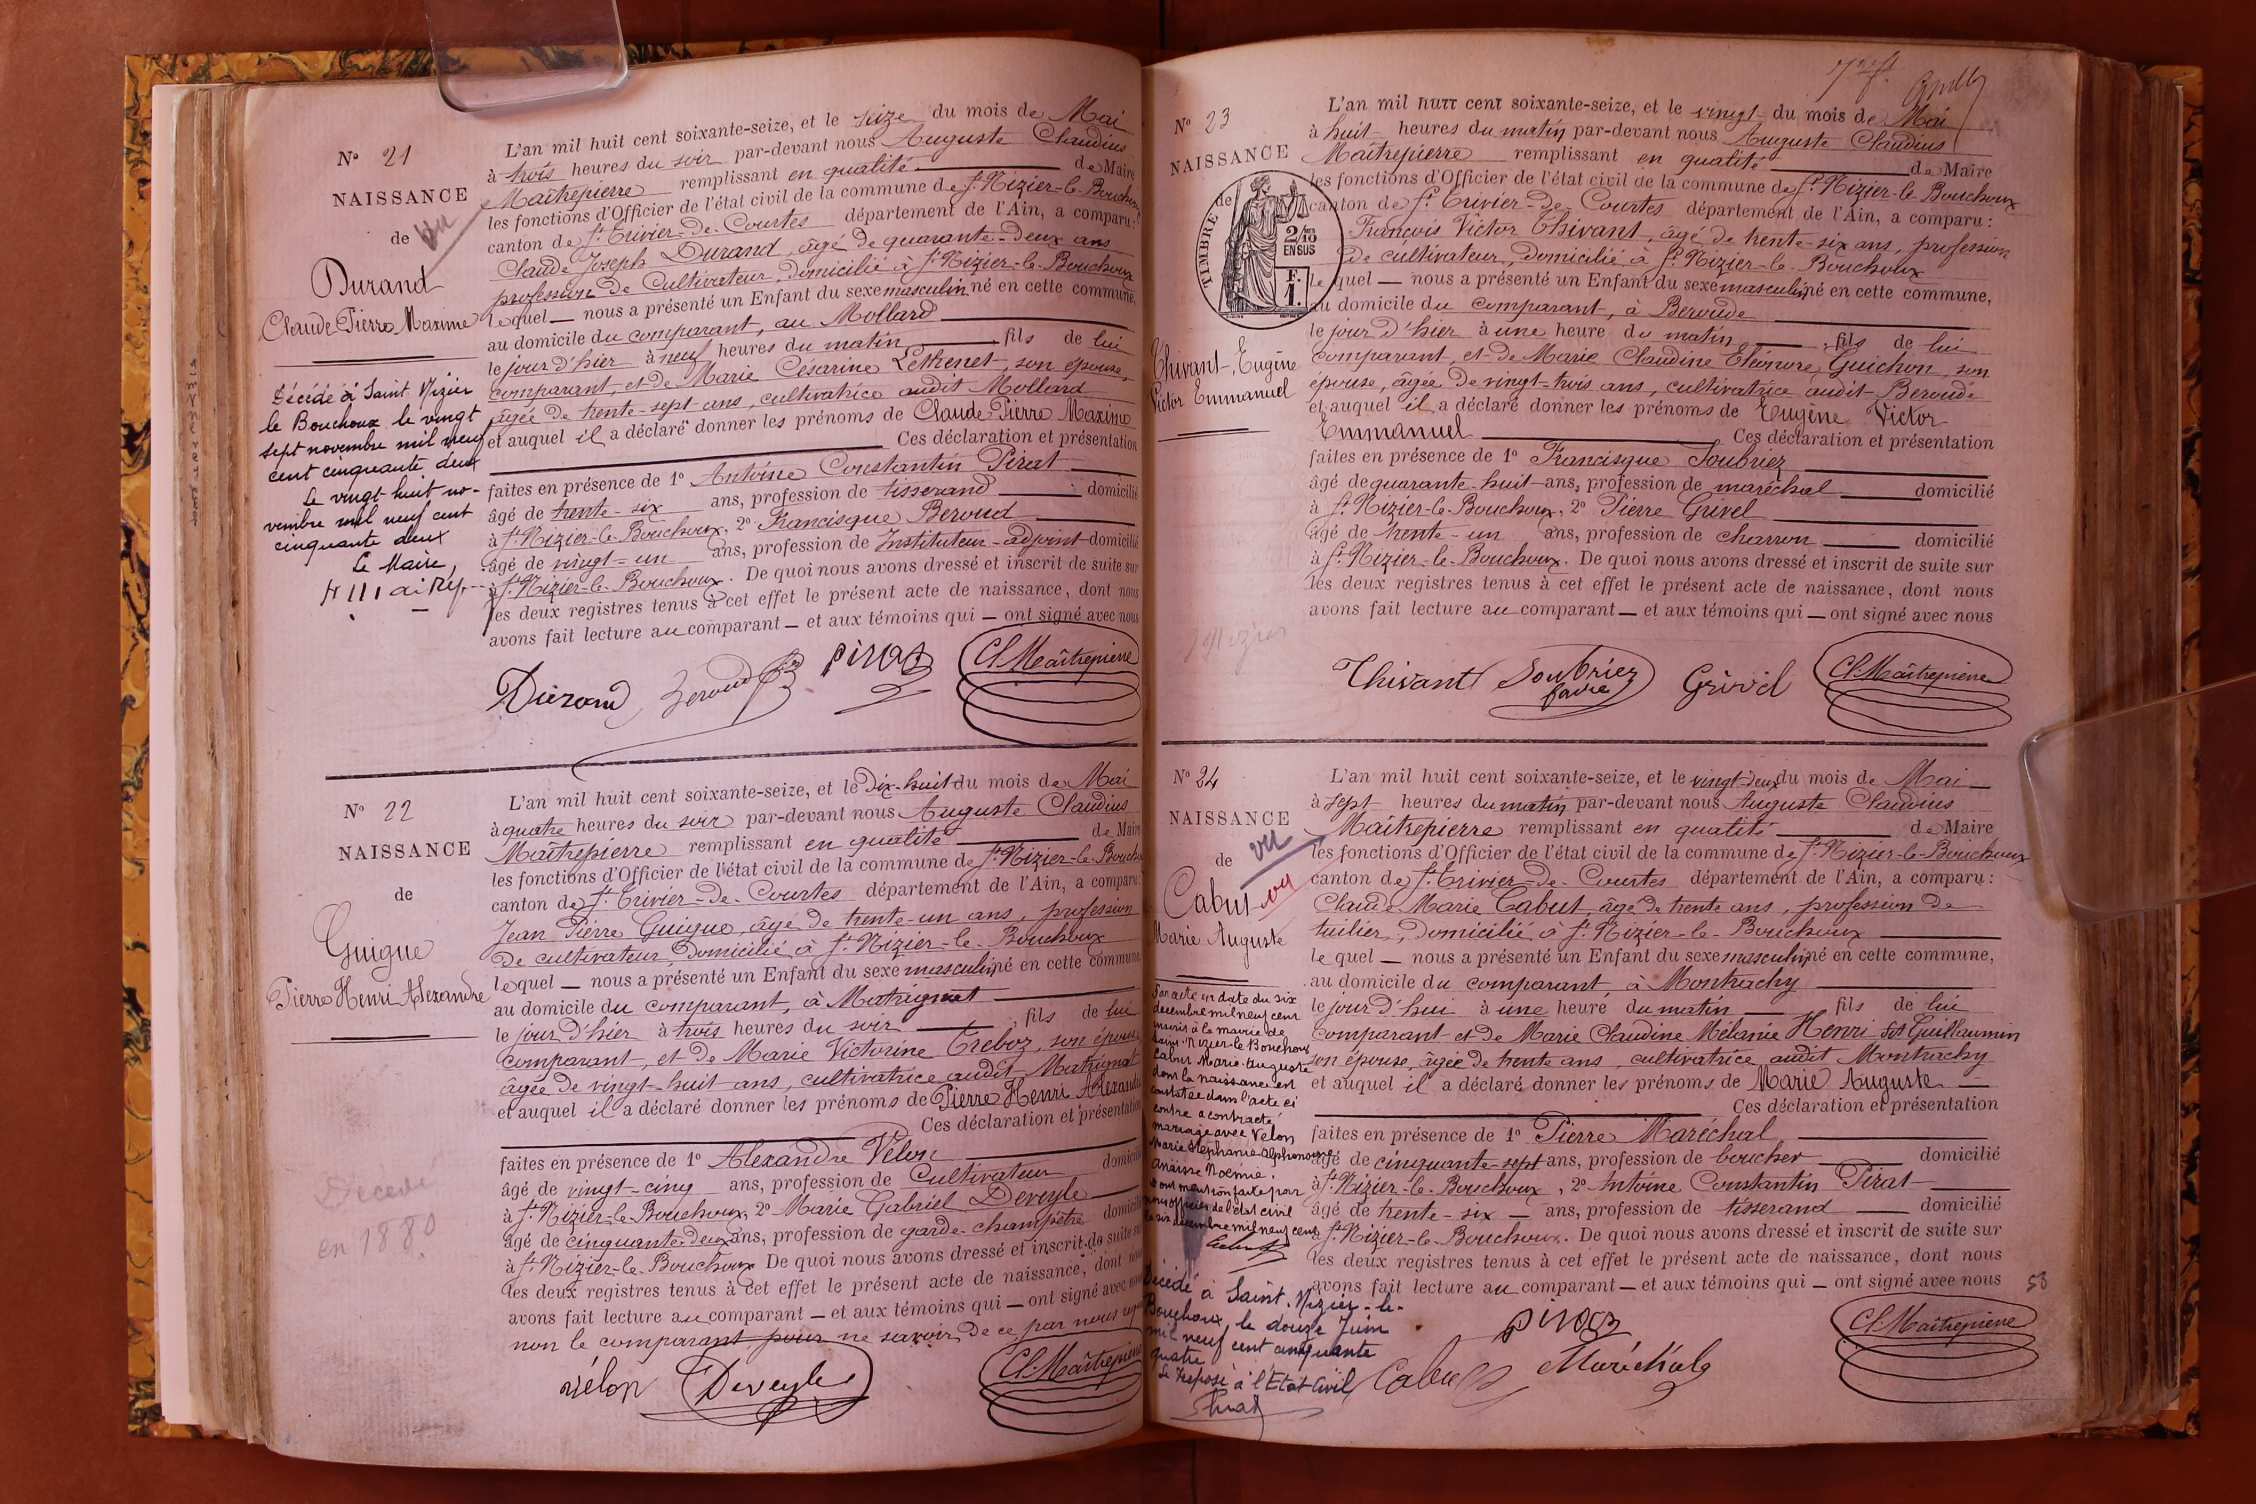 N° 21
NAISSANCE
de vu
Durand
Claude Pierre Maxime
Décédé à Saint Nizier
le Bouchoux le vingt
sept novembre mil neuf
cent cinquante deux
Le vingt-huit no-
vembre mil neuf cent
cinquante deux
Le Maire,
L'an mil huit cent soixante-seize, et le seize du mois de Mai
à trois heures du soir par-devant nous Auguste Claudius
Maîtrepierre remplissant en qualité de Maire
les fonctions d'Officier de l'état civil de la commune de St Nizier-le-Bouchoux
canton de St Trivier-de-Courtes département de l'Ain, a comparu:
Claude Joseph Durand, âgé de quarante-deux ans
profession de Cultivateur, domicilié à St Nizier-le-Bouchoux
lequel — nous a présenté un Enfant du sexe masculin né en cette commune,
au domicile du comparant, au Mollard
le jour d'hier à neuf heures du matin fils de lui
comparant, et de Marie Césarine Lethenet, son épouse,
âgée de trente-sept ans, cultivatrice audit Mollard
et auquel il a déclaré donner les prénoms de Claude Pierre Maxime
Ces déclaration et présentation
faites en présence de 1° Antoine Constantin Pirat
âgé de trente-six ans, profession de tisserand domicilié
à St Nizier-le-Bouchoux, 2° Francisque Beroud
âgé de vingt-un ans, profession de Instituteur-adjoint domicilié
à St Nizier-le-Bouchoux. De quoi nous avons dressé et inscrit de suite sur
les deux registres tenus à cet effet le présent acte de naissance, dont nous
avons fait lecture au comparant — et aux témoins qui — ont signé avec nous
Durand Beroud Pirat Cl. Maîtrepierre
N° 22
NAISSANCE
de
Guigue
Pierre Henri Alexandre
Décédé
en 1880
L'an mil huit cent soixante-seize, et le dix-huit du mois de Mai
à quatre heures du soir par-devant nous Auguste Claudius
Maîtrepierre remplissant en qualité de Maire
les fonctions d'Officier de l'état civil de la commune de St Nizier-le-Bouch
canton de St Trivier-de-Courtes département de l'Ain, a comparu:
Jean Pierre Guigue, âgé de trente-un ans, profession
de cultivateur, domicilié à St Nizier-le-Bouchoux
lequel — nous a présenté un Enfant du sexe masculin né en cette commune
au domicile du comparant, à Matrignat
le jour d'hier à trois heures du soir fils de lui
comparant, et de Marie Victorine Treboz, son épouse
âgée de vingt-huit ans, cultivatrice audit Matrignat
et auquel il a déclaré donner les prénoms de Pierre Henri Alexandre
Ces déclaration et présentation
faites en présence de 1° Alexandre Vélon
âgé de vingt-cinq ans, profession de Cultivateur domicilié
à St Nizier-le-Bouchoux, 2° Marie Gabriel Deveyle
âgé de cinquante-deux ans, profession de garde-champêtre domicilié
à St Nizier-le-Bouchoux De quoi nous avons dressé et inscrit de suite sur
les deux registres tenus à cet effet le présent acte de naissance, dont nous
avons fait lecture au comparant — et aux témoins qui — ont signé avec nous
non le comparant pour ne savoir de ce par nous
vélon Deveyle Cl. Maîtrepierre
N° 23
NAISSANCE
de
TIMBRE
2/10
EN SUS
F.
1.
Thivant, Eugène
Victor Emmanuel
L'an mil huit cent soixante-seize, et le vingt du mois de Mai
à huit heures du matin par-devant nous Auguste Claudius
Maîtrepierre remplissant en qualité de Maire
les fonctions d'Officier de l'état civil de la commune de St Nizier-le-Bouchoux
canton de St Trivier-de-Courtes département de l'Ain, a comparu:
François Victor Thivant, âgé de trente-six ans, profession
de cultivateur, domicilié à St Nizier-le-Bouchoux
lequel — nous a présenté un Enfant du sexe masculin né en cette commune,
au domicile du comparant, à Beroude
le jour d'hier à une heure du matin fils de lui
comparant, et de Marie Claudine Eléonore Guichon, son
épouse, âgée de vingt-trois ans, cultivatrice audit Beroude
et auquel il a déclaré donner les prénoms de Eugène Victor
Emmanuel Ces déclaration et présentation
faites en présence de 1° Francisque Soubriez
âgé de quarante-huit ans, profession de maréchal domicilié
à St Nizier-le-Bouchoux, 2° Pierre Grivel
âgé de trente-un ans, profession de charron domicilié
à St Nizier-le-Bouchoux. De quoi nous avons dressé et inscrit de suite sur
les deux registres tenus à cet effet le présent acte de naissance, dont nous
avons fait lecture au comparant — et aux témoins qui — ont signé avec nous
Thivant Soubriez Grivel Cl. Maîtrepierre
N° 24
NAISSANCE
de vu
Cabut vu
Marie Auguste
Par acte en date du six
décembre mil neuf cent
inscrit à la mairie de
Saint-Nizier-le-Bouchoux
Cabut Marie Auguste
dont la naissance est
constatée dans l'acte ci
contre a contracté
mariage avec Vélon
Marie Stéphanie Alphonsine
Anaïsse Noémie.
Dont mention faite par
nous officier de l'état civil
le six décembre mil neuf cent
Décédé à Saint-Nizier-le-
Bouchoux, le douze Juin
mil neuf cent cinquante
quatre
Le Préposé à l'Etat-Civil
L'an mil huit cent soixante-seize, et le vingt-deux du mois de Mai
à sept heures du matin par-devant nous Auguste Claudius
Maîtrepierre remplissant en qualité de Maire
les fonctions d'Officier de l'état civil de la commune de St Nizier-le-Bouchoux
canton de St Trivier-de-Courtes département de l'Ain, a comparu:
Claude Marie Cabut, âgé de trente ans, profession de
tuilier, domicilié à St Nizier-le-Bouchoux
lequel — nous a présenté un Enfant du sexe masculin né en cette commune,
au domicile du comparant, à Montrachy
le jour d'hui à une heure du matin fils de lui
comparant et de Marie Claudine Mélanie Henri dit Guillaumin
son épouse, âgée de trente ans, cultivatrice audit Montrachy
et auquel il a déclaré donner les prénoms de Marie Auguste
Ces déclaration et présentation
faites en présence de 1° Pierre Maréchal
âgé de cinquante-sept ans, profession de boucher domicilié
à St Nizier-le-Bouchoux, 2° Antoine Constantin Pirat
âgé de trente-six — ans, profession de tisserand domicilié
à St Nizier-le-Bouchoux. De quoi nous avons dressé et inscrit de suite sur
les deux registres tenus à cet effet le présent acte de naissance, dont nous
avons fait lecture au comparant — et aux témoins qui — ont signé avec nous
53
Cabut Pirat Maréchal Cl. Maîtrepierre